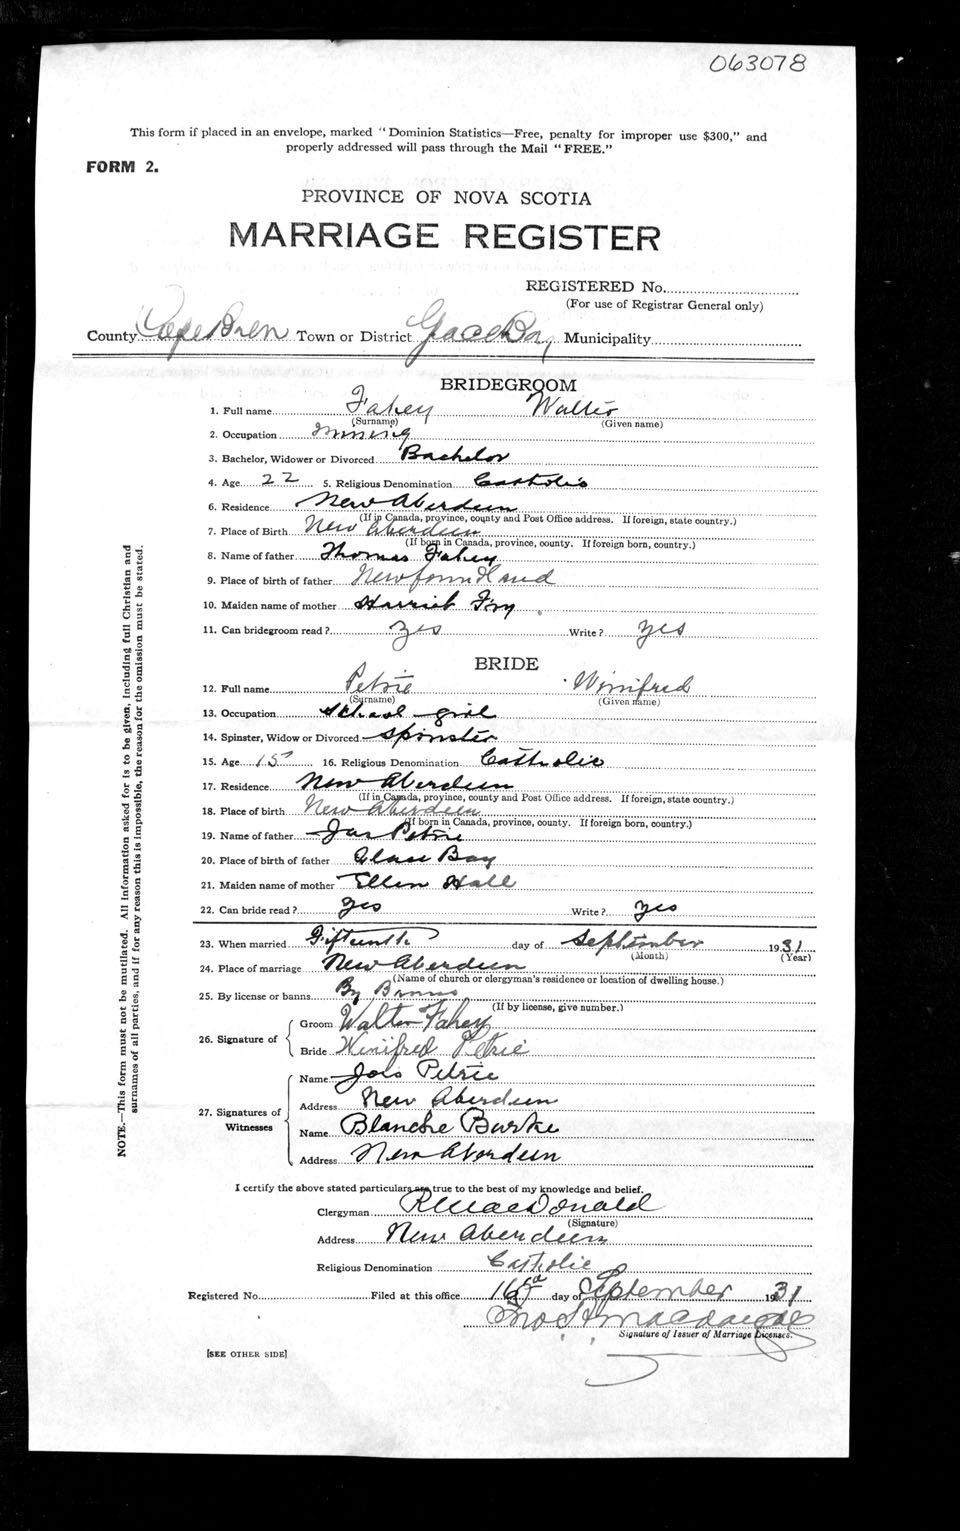 063078
This form if placed in an envelope, marked "Dominion Statistics—Free, penalty for improper use $300," and
properly addressed will pass through the Mail "FREE."
FORM 2.
PROVINCE OF NOVA SCOTIA
MARRIAGE REGISTER
REGISTERED No.
(For use of Registrar General only)
County Cape Breton Town or District Glace Bay Municipality
BRIDEGROOM
1. Full name Fahey Walter
(Surname) (Given name)
2. Occupation mining
3. Bachelor, Widower or Divorced Bachelor
4. Age 22 5. Religious Denomination Catholic
6. Residence New Aberdeen
(If in Canada, province, county and Post Office address. If foreign, state country.)
7. Place of Birth New Aberdeen
(If born in Canada, province, county. If foreign born, country.)
8. Name of father Thomas Fahey
9. Place of birth of father Newfoundland
10. Maiden name of mother Harriet Fry
11. Can bridegroom read ? yes Write ? yes
BRIDE
12. Full name Petrie Winifred
(Surname) (Given name)
13. Occupation School girl
14. Spinster, Widow or Divorced Spinster
15. Age 15 16. Religious Denomination Catholic
17. Residence New Aberdeen
(If in Canada, province, county and Post Office address. If foreign, state country.)
18. Place of birth New Aberdeen
(If born in Canada, province, county. If foreign born, country.)
19. Name of father Jas Petrie
20. Place of birth of father Glace Bay
21. Maiden name of mother Ellen Hall
22. Can bride read ? yes Write ? yes
23. When married Fifteenth day of September 1931
(Month) (Year)
24. Place of marriage New Aberdeen
(Name of church or clergyman's residence or location of dwelling house.)
25. By license or banns By Banns
(If by license, give number.)
26. Signature of
Groom Walter Fahey
Bride Winifred Petrie
27. Signatures of Witnesses
Name Petrie
Address New Aberdeen
Name Blanche Burke
Address New Aberdeen
I certify the above stated particulars are true to the best of my knowledge and belief.
Clergyman MacDonald
(Signature)
Address New Aberdeen
Religious Denomination Catholic
Registered No. Filed at this office 16 day of September 1931
Signature of Issuer of Marriage Licenses.
[SEE OTHER SIDE]
NOTE.—This form must not be mutilated. All information asked for is to be given, including full Christian and
surnames of all parties, and if for any reason this is impossible, the reason for the omission must be stated.